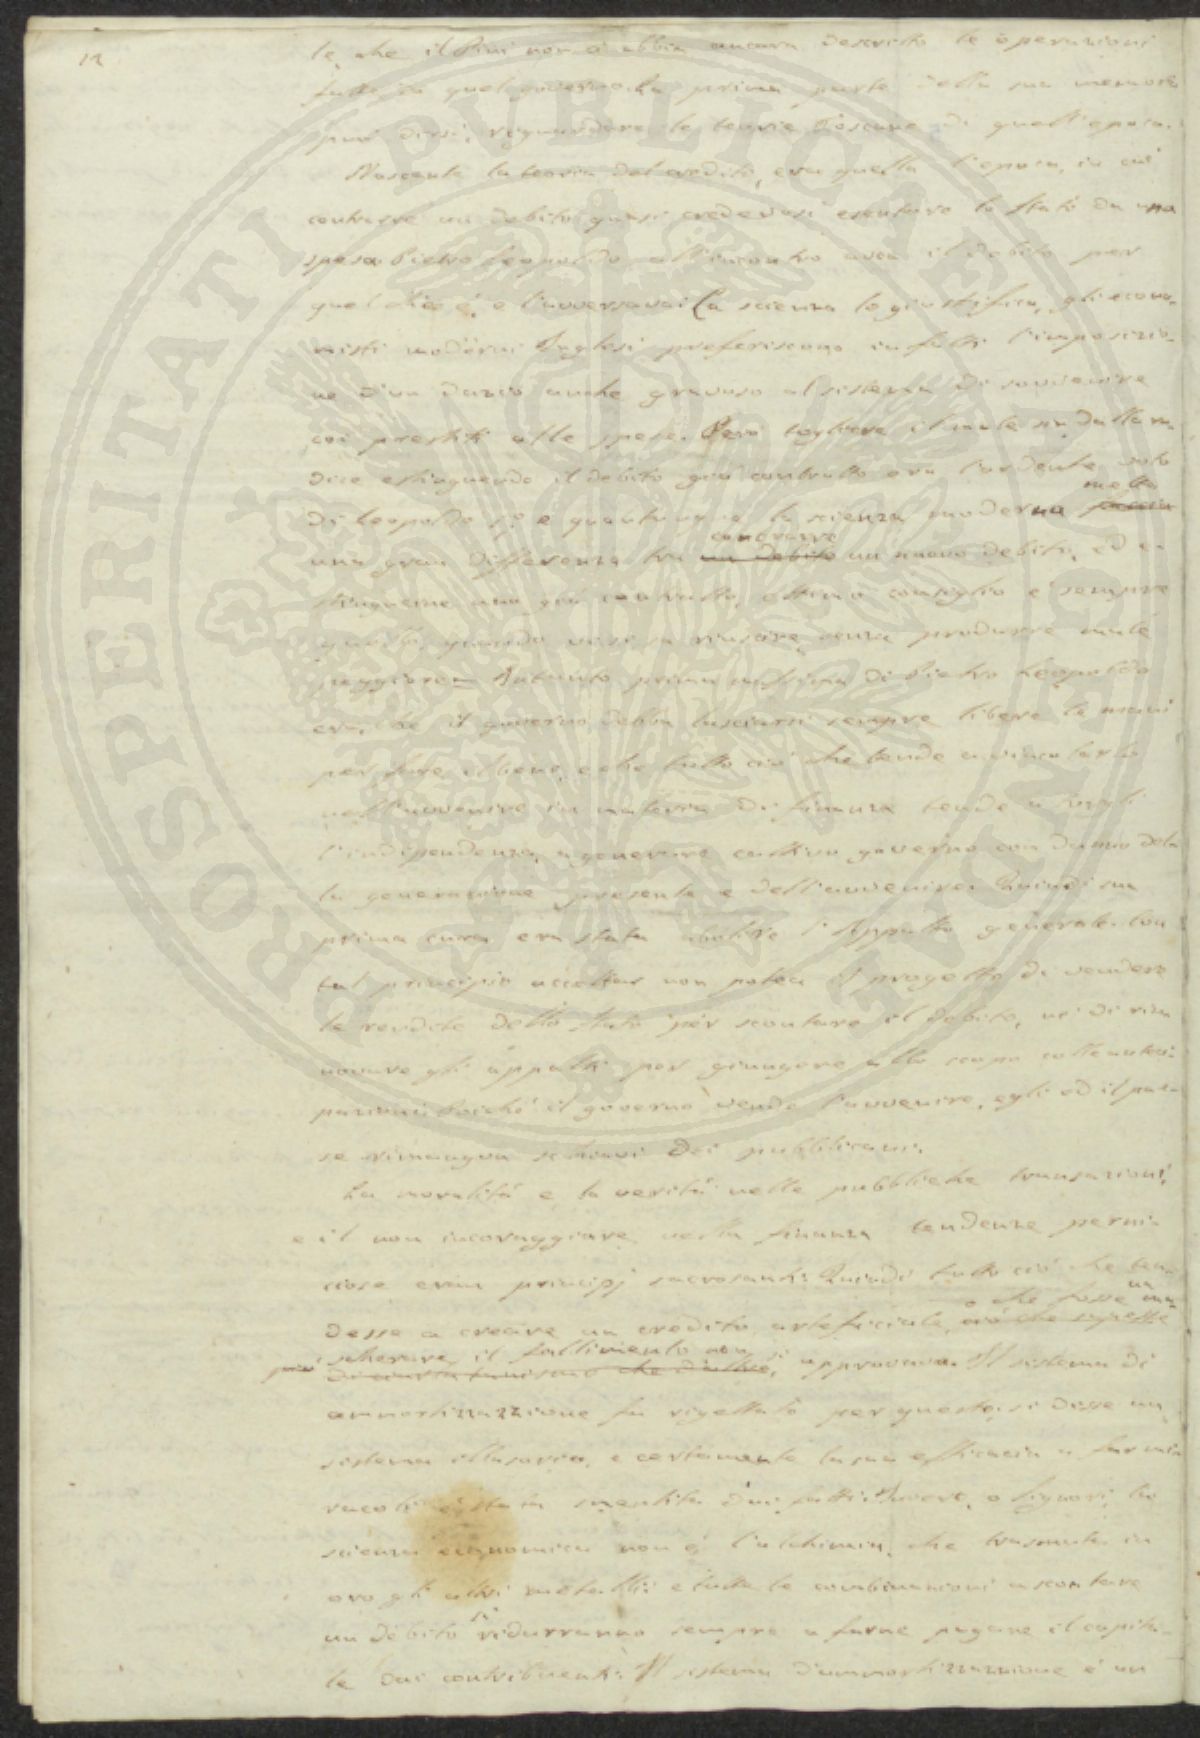 12
le, che il Pini non ci abbia ancora descritto le operazioni
fatte da quel governo. La prima parte della sua memoria
può dirsi, riguardare le teorie Toscane di quell'epoca.
Nascente la teoria del credito, era quella l'epoca, in cui
contrarre un debito quasi credevasi esentare lo Stato da una
spesa. Pietro Leopoldo all'incontro avea il debito per
quel che è, e l'avversava. La scienza lo giustifica, gli econo-
misti moderni Inglesi preferiscono infatti l'imposizio-
ne d'un dazio anche gravoso al sistema di sovvenire
coi prestiti alle spese. Però togliere il male sin dalla ra-
dice estinguendo il debito già contratto era l'ardente voto
di Leopoldo Iº e quantunque la scienza moderna faccia
metta
una gran differenza tra un debito un nuovo debito, ed e-
contrarre
stinguerne uno già contratto, ottimo consiglio è sempre
questo, quando vi si sa riuscire senza produrre male
peggiore. Intanto prima massima di Pietro Leopoldo
era, che il governo debba lasciarsi sempre libere le mani
per fare il bene, e che tutto ciò che tende a vincolarlo
nell'avvenire in materia di finanza tende a torgli
l'indipendenza, a generare cattivo governo con danno del-
la generazione presente e dell'avvenire. Quindi sua
prima cura era stata abolire l'Appalto generale. Con
tal principio accettar non potea il progetto di vendere
le rendite dello Stato per scontare il debito, nè di rin-
novare gli appalti per giungere allo scopo colle antici-
pazioni: Poichè il governo vende l'avvenire, egli ed il pae-
se rimangon schiavi dei pubblicani.
La moralità e la verità nelle pubbliche transazioni,
e il non incoraggiare nella finanza tendenze perni-
ciose eran principj sacrosanti: Quindi tutto ciò che ten-
desse a creare un credito arteficiale,
o che fosse un
scherare il fallimento non si approvava. Il sistema di
ammortizzazione fu rigettato per questo, si disse un
sistema illusorio, e certamente la sua efficacia a far mi-
racoli è stata smentita dai fatti. Invero, o Signori, la
scienza economica non è l'alchimia, che trasmuta in
oro gli altri metalli: e tutte le combinazioni a scontare
un debito si ridurranno sempre a farne pagare il capita-
le dai contribuenti: Il sistema d'ammortizzazione è un